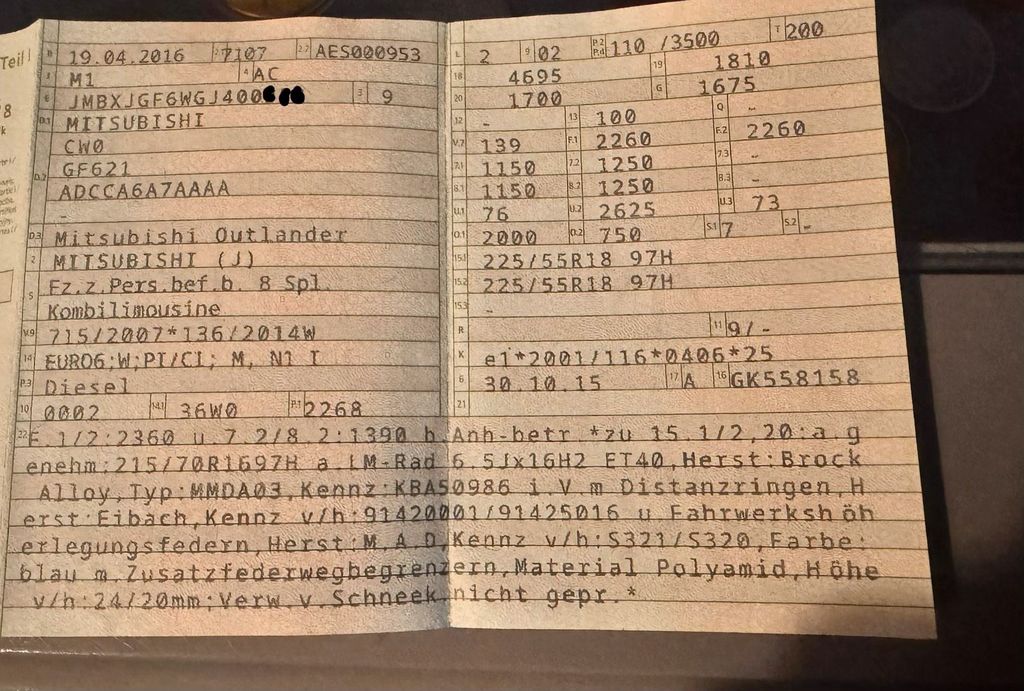 Teil I
B 19.04.2016 2.1 7107 2.2 AES000953
J M1 4 AC
E JMBXJGF6WGJ400 3 9
D.1 MITSUBISHI
CW0
D.2 GF621
ADCCA6A7AAAA
-
D.3 Mitsubishi Outlander
2 MITSUBISHI (J)
5 Fz.z.Pers.bef.b. 8 Spl.
Kombilimousine
V.9 715/2007*136/2014W
14 EURO6;W;PI/CI; M, N1 I
P.3 Diesel
10 0002 14.1 36W0 P.1 2268
L 2 9 02 P.2 P.4 110 /3500 T 200
18 4695 19 1810
20 1700 G 1675
12 - 13 100 Q -
V.7 139 F.1 2260 F.2 2260
7.1 1150 7.2 1250 7.3 -
8.1 1150 8.2 1250 8.3 -
U.1 76 U.2 2625 U.3 73
O.1 2000 O.2 750 S.1 7 S.2 -
15.1 225/55R18 97H
15.2 225/55R18 97H
15.3 -
R 11 9/-
K e1*2001/116*0406*25
6 30.10.15 17 A 16 GK558158
21
22 F.1/2:2360 u.7.2/8.2:1390 b.Anh-betr.*zu 15.1/2,20:a.g
enehm:215/70R1697H a.LM-Rad 6.5Jx16H2 ET40,Herst:Brock
Alloy,Typ:MMDA03,Kennz:KBA50986 i.V.m.Distanzringen,H
erst:Eibach,Kennz v/h:91420001/91425016 u.Fahrwerkshöh
erlegungsfedern,Herst:M.A.D,Kennz v/h:S321/S320,Farbe:
blau m.Zusatzfederwegbegrenzern,Material Polyamid,Höhe
v/h:24/20mm;Verw.v.Schneek.nicht gepr.*